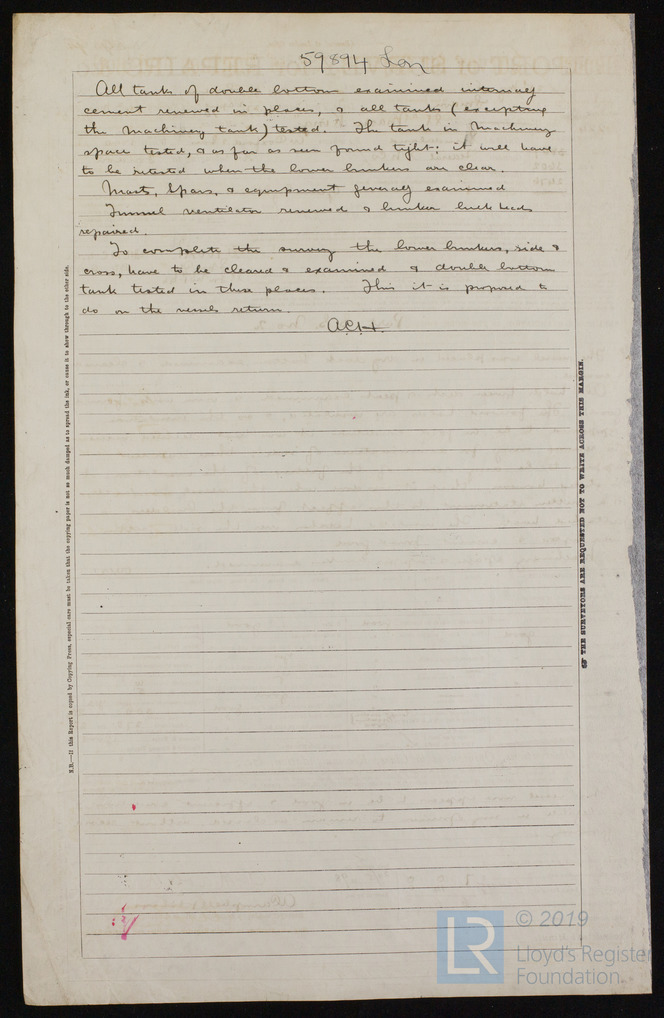 59894 Lon
All tanks of double bottom examined internally
cement renewed in places, & all tanks (excepting
the Machinery tank) tested. The tank in Machinery
space tested, & as far as seen found tight: it will have
to be retested when the lower bunkers are clear.
Masts, Spars, & equipment generally examined
Funnel ventilator renewed & bunker bulkheads
repaired.
To complete the survey the lower bunkers, side &
cross, have to be cleared & examined & double bottom
tank tested in these places. This it is proposed to
do on the vessels return.
ACH.
N.B.—If this Report is copied by Copying Press, especial care must be taken that the copying paper is not so much damped as to spread the ink, or cause it to show through to the other side.
☞ THE SURVEYORS ARE REQUESTED NOT TO WRITE ACROSS THIS MARGIN.
LR
© 2019
Lloyd's Register
Foundation